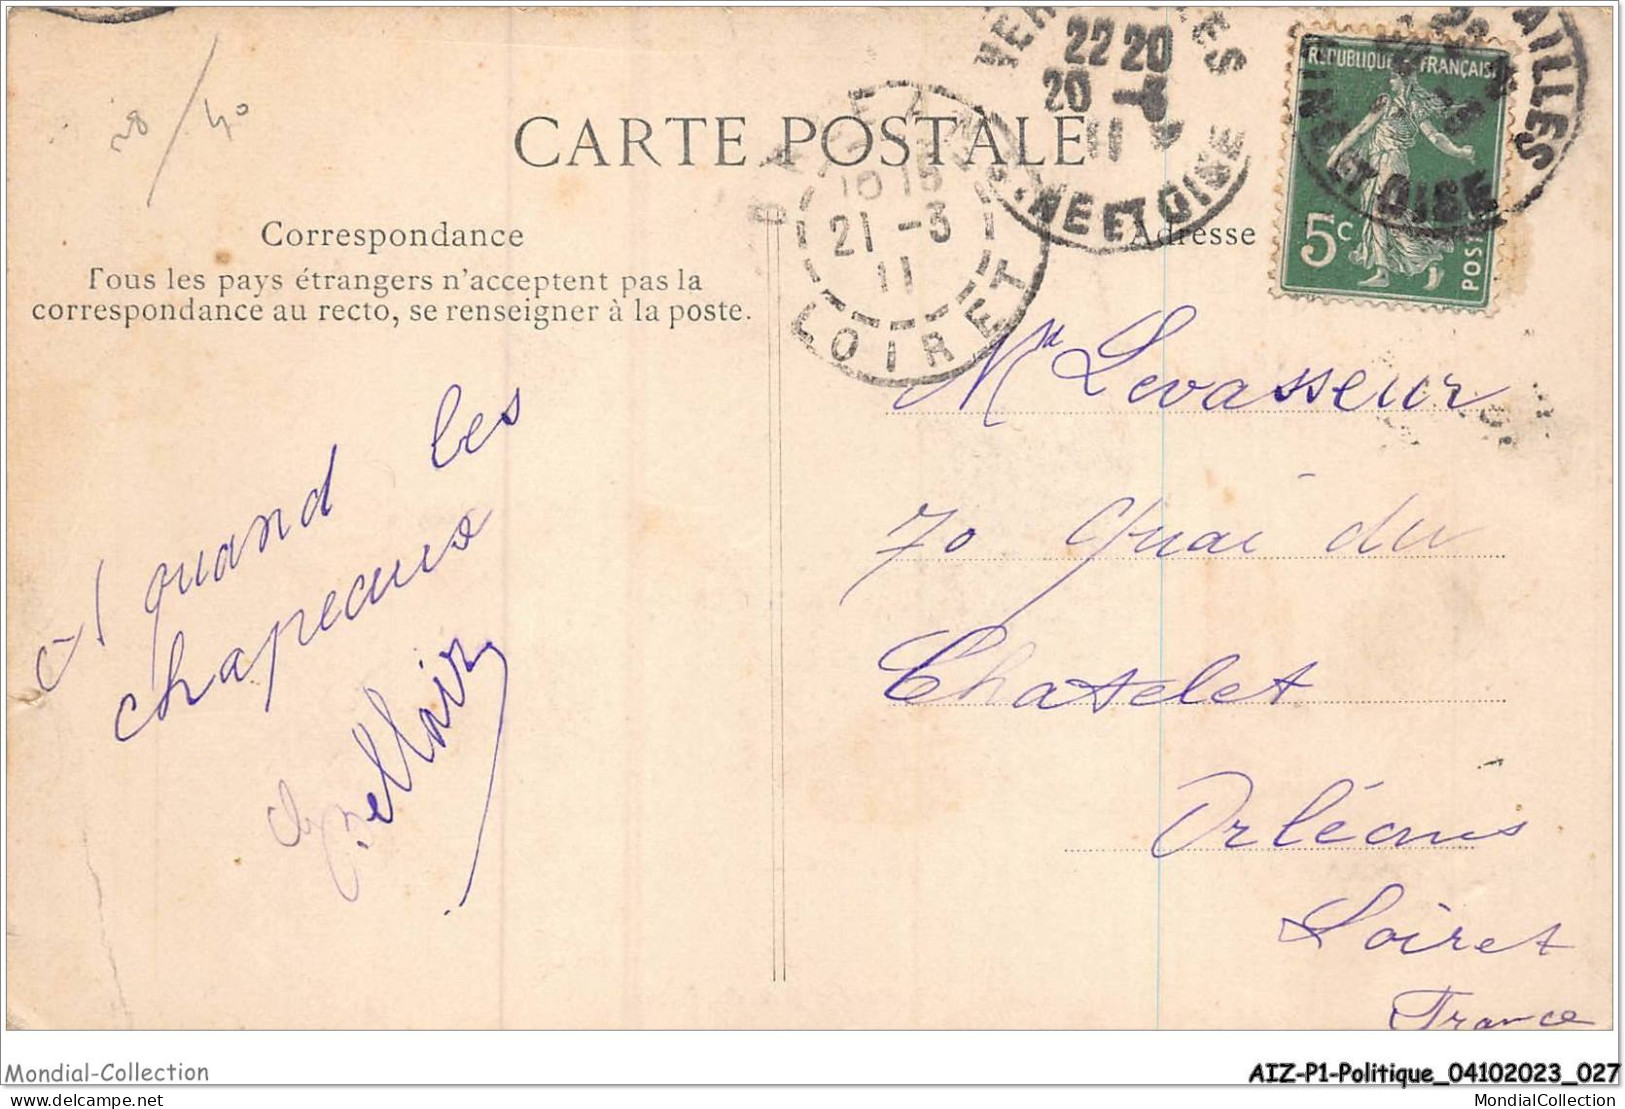 28/40
CARTE POSTALE
VERSAILLES
22 20
20
11
NE ET OISE
ORLEANS
10 15
21 -3
11
LOIRET
AILLES
NE ET OISE
REPUBLIQUE FRANÇAISE
5c
POST
Correspondance
Tous les pays étrangers n'acceptent pas la
correspondance au recto, se renseigner à la poste.
Adresse
Et quand les
chapeaux
Mr Levasseur
70 Quai du
Chatelet
Orléans
Loiret
France
Mondial-Collection
AIZ-P1-Politique_04102023_027
delcampe.net
MondialCollection